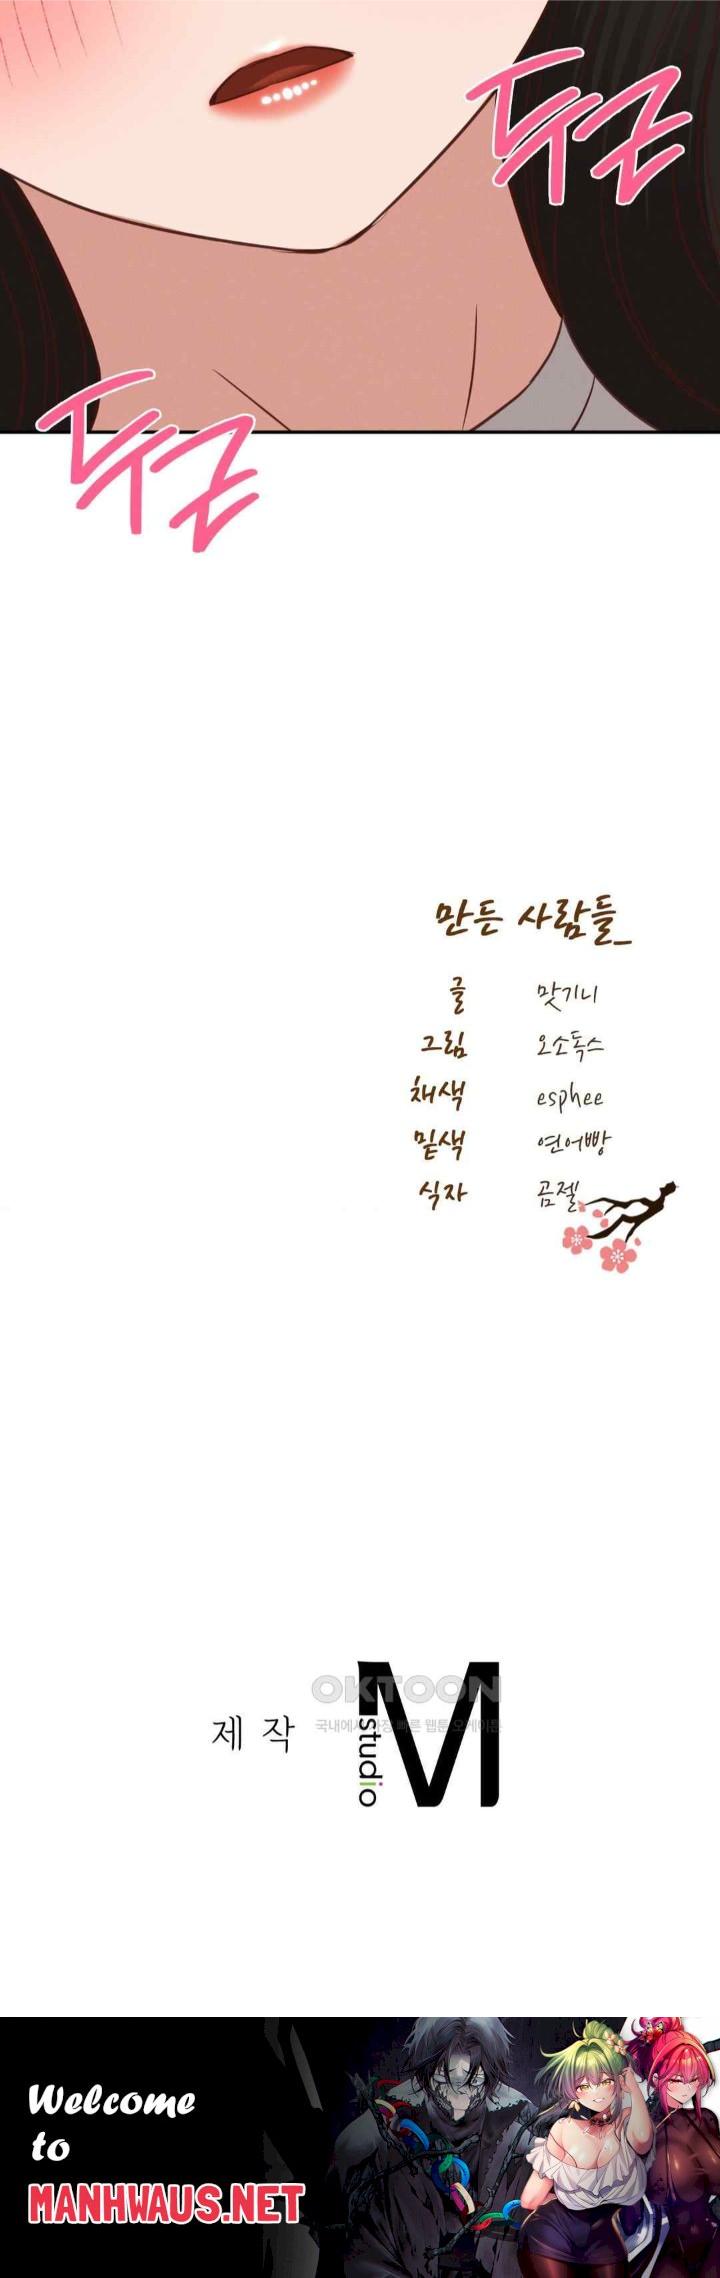 두근
두근
만든 사람들_
글 맛기니
그림 오소독스
채색 esphee
밑색 연어빵
식자 곰젤
OKTOON
국내에서 가장 빠른 웹툰 오케이툰
제작
M
studio
Welcome
to
MANHWAUS.NET